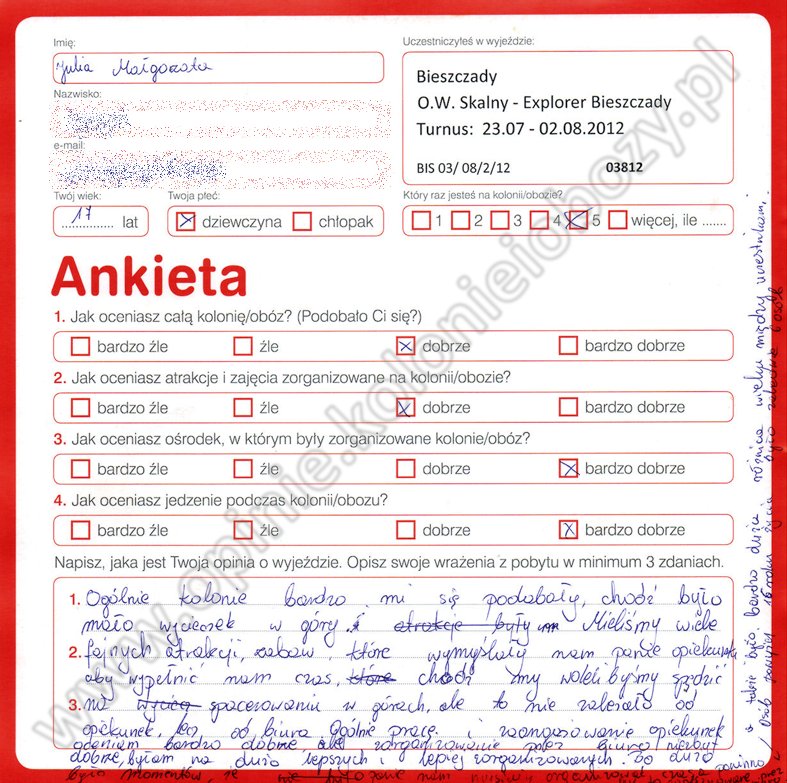 Imię:
Julia Małgorzata
Nazwisko:
e-mail:
Twój wiek:
17 lat
Twoja płeć:
dziewczyna chłopak
Uczestniczyłeś w wyjeździe:
Bieszczady
O.W. Skalny - Explorer Bieszczady
Turnus: 23.07 - 02.08.2012
BIS 03/ 08/2/12 03812
Który raz jesteś na kolonii/obozie?
1 2 3 4 5 więcej, ile .......
Ankieta
1. Jak oceniasz całą kolonię/obóz? (Podobało Ci się?)
bardzo źle źle dobrze bardzo dobrze
2. Jak oceniasz atrakcje i zajęcia zorganizowane na kolonii/obozie?
bardzo źle źle dobrze bardzo dobrze
3. Jak oceniasz ośrodek, w którym byly zorganizowane kolonie/obóz?
bardzo źle źle dobrze bardzo dobrze
4. Jak oceniasz jedzenie podczas kolonii/obozu?
bardzo źle źle dobrze bardzo dobrze
Napisz, jaka jest Twoja opinia o wyjeździe. Opisz swoje wrażenia z pobytu w minimum 3 zdaniach.
1. Ogólnie kolonie bardzo mi się podobały, chodź było
mało wycieczek w góry. i atrakcje były Mieliśmy wiele
2. fajnych atrakcji, zabaw, które wymyślały nam panie opiekunki
aby wypełnić nam czas, które chodź my woleli byśmy spędzić
3. na spacerowaniu w górach, ale to nie zależało od
opiekunek, lecz od biura. Ogólnie pracę i zaangażowanie opiekunek
oceniam bardzo dobrze, ale zorganizowanie przez biuro niezbyt
dobrze, byłam na dużo lepszych i lepiej zorganizowanych. Bo dużo
było momentów, że nam
także była bardzo duża różnica wieku między uczestnikami.
Osób powyżej 16 roku życia było zaledwie 6 osób
powinno
www.opinie.kolonieiobozy.pl